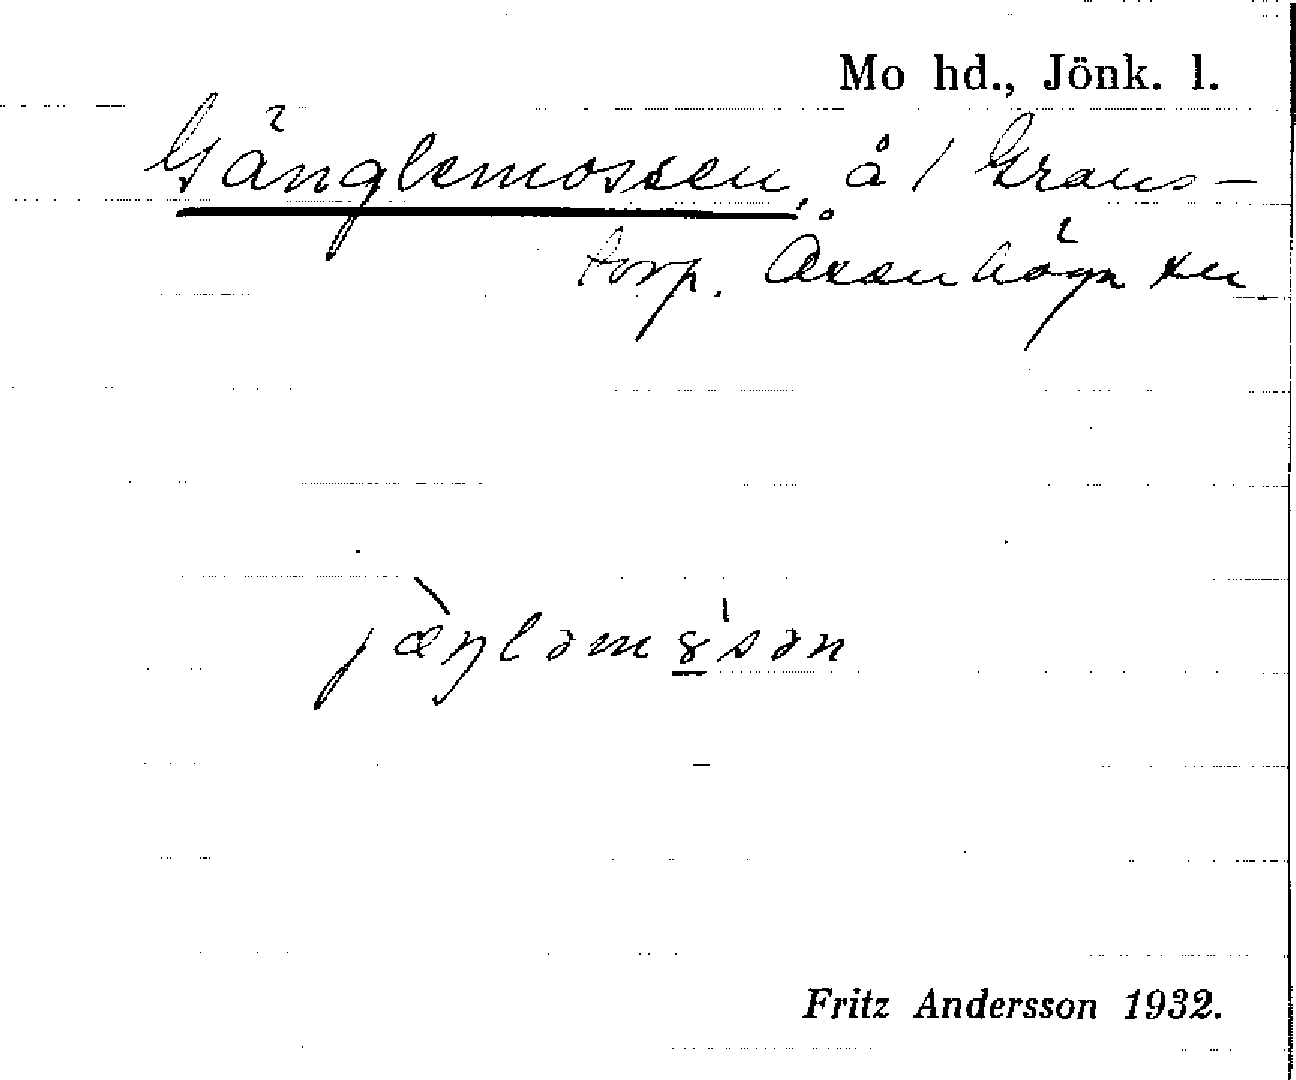 Mo hd., Jönk. l.
Gänglemossen, å / Grans-
torp. Åsenhöga sn
jæŋləmꝍsən
Fritz Andersson 1932.